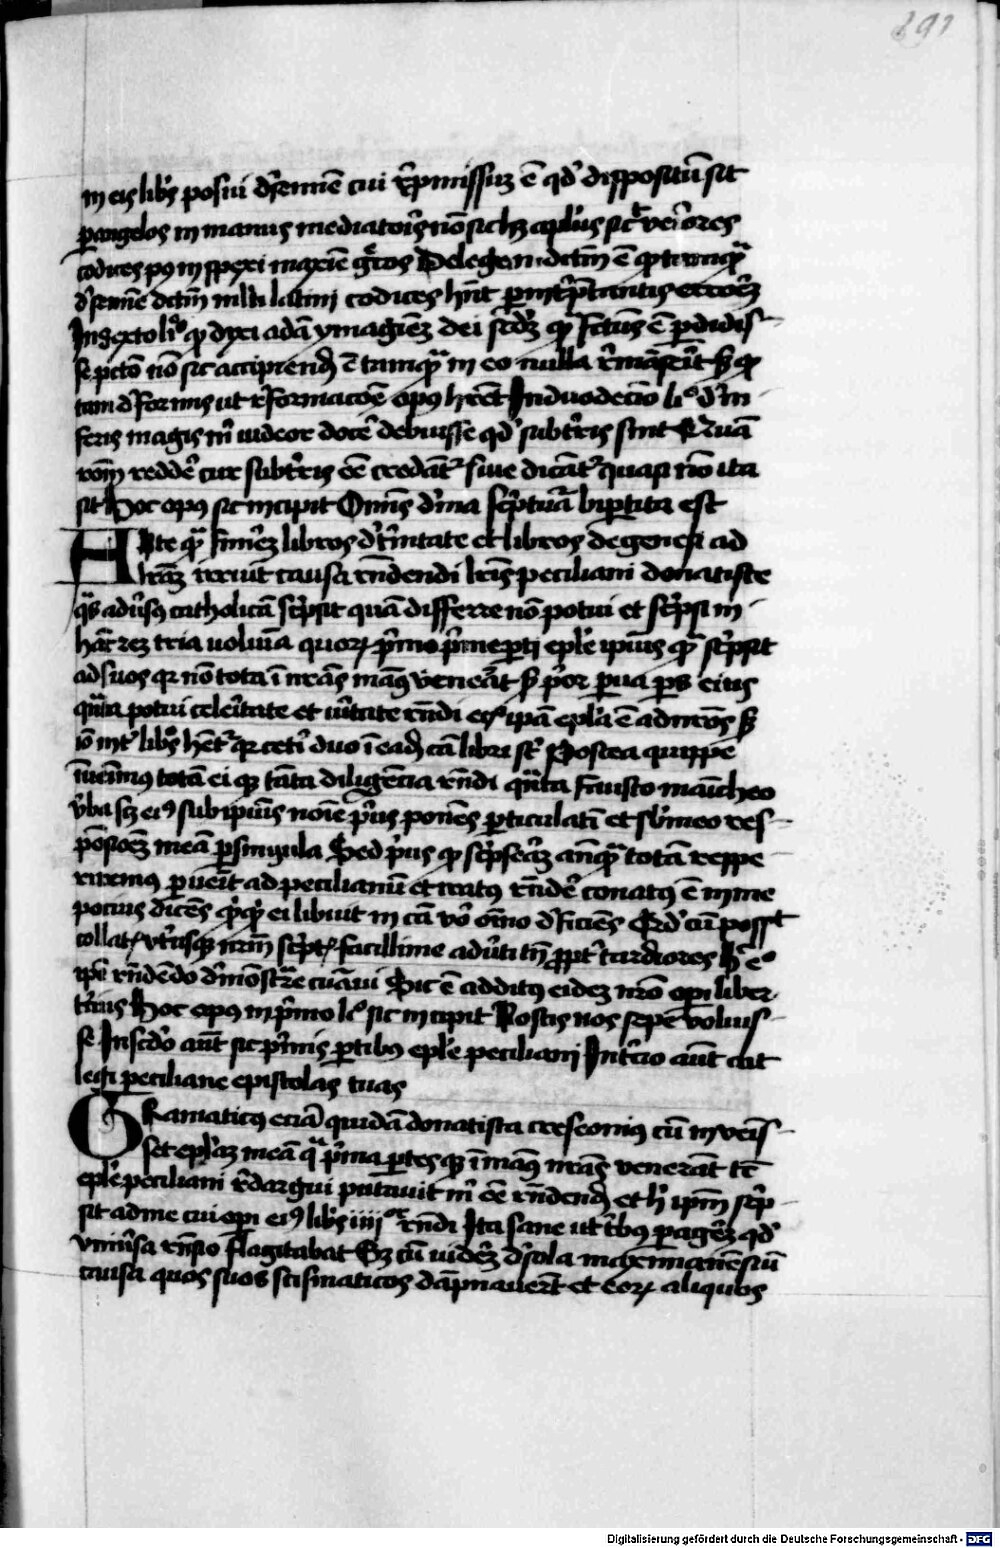 191
in eis libris posui de semine cui repromissum est quod dispositum sit
per angelos in manus mediatoris non sic habet apostolus sicut veriores
codices postea inspexi maxime grecos De lege enim dictum est quod tamquam
de semine dictum multi latini codices habent per interpretantis errorem
In sexto libro quod dixi adam ymaginem dei secundum quam factus est perdidis-
se peccato non sic accipiendum est tamquam in eo nulla remanserit sed quod
tam deformis ut reformatione opus haberet In duodecimo libro de in-
feris magis mihi videor docere debuisse quod sub terris sint quam
rationem reddere cur sub terris esse credantur sive dicantur quasi non ita
sit Hoc opus sic incipit Omnis divina scriptura bipertita est
Ante quam finirem libros de trinitate et libros de genesi ad
litteram irruit causa respondendi litteris peciliani donatiste
quas adversus catholicam scripsit quam differre non potui et scripsi in
hanc rem tria volumina quorum primo prime parti epistole ipsius quam scripsit
ad suos quia non tota in nostras manus venerat sed prior parva pars eius
quanta potui celeritate et veritate respondi etiam ipsam epistola est ad nostros sed
ideo inter libros habetur quia ceteri duo in eadem causa libri sunt Postea quippe
invenimus totam ei quia tanta diligencia respondi quanta fausto manicheo
verba scilicet eius sub ipsius nomine prius ponens particulatim et sub meo res-
ponsionem meam per singula Sed prius quod scripseram antequam totam reppe-
riremus pervenit ad pecilianum et iratus respondere conatus est in me
pocius dicens quidquid ei libuit in causa vero omnino deficiens Quod cum posset
collatis utriusque nostrum scriptis facillime adverti tamen propter tardiores hoc
ipse respondendo demonstrare curavi Sic est additus eidem nostro operi liber
tercius Hoc opus in primo libro sic incipit Nostis nos sepe voluis-
se In secundo autem sic primis partibus epistole peciliani In tercio autem sic
legi peciliane epistolas tuas
Gramaticus eciam quidam donatista cresconius cum invenis-
set epistolam meam qua primas partes que in manus nostras venerant tunc
epistole peciliani redargui putavit mihi esse respondendum et hoc ipsum scrip-
sit ad me cui operi eius libris iiii or respondi Ita sane ut tribus peragerem quod
universa responsio flagitabat Sed cum viderem de sola maximianensium
causa quos suos scismaticos dampnaverunt et eorum aliquos
Digitalisierung gefördert durch die Deutsche Forschungsgemeinschaft - DFG